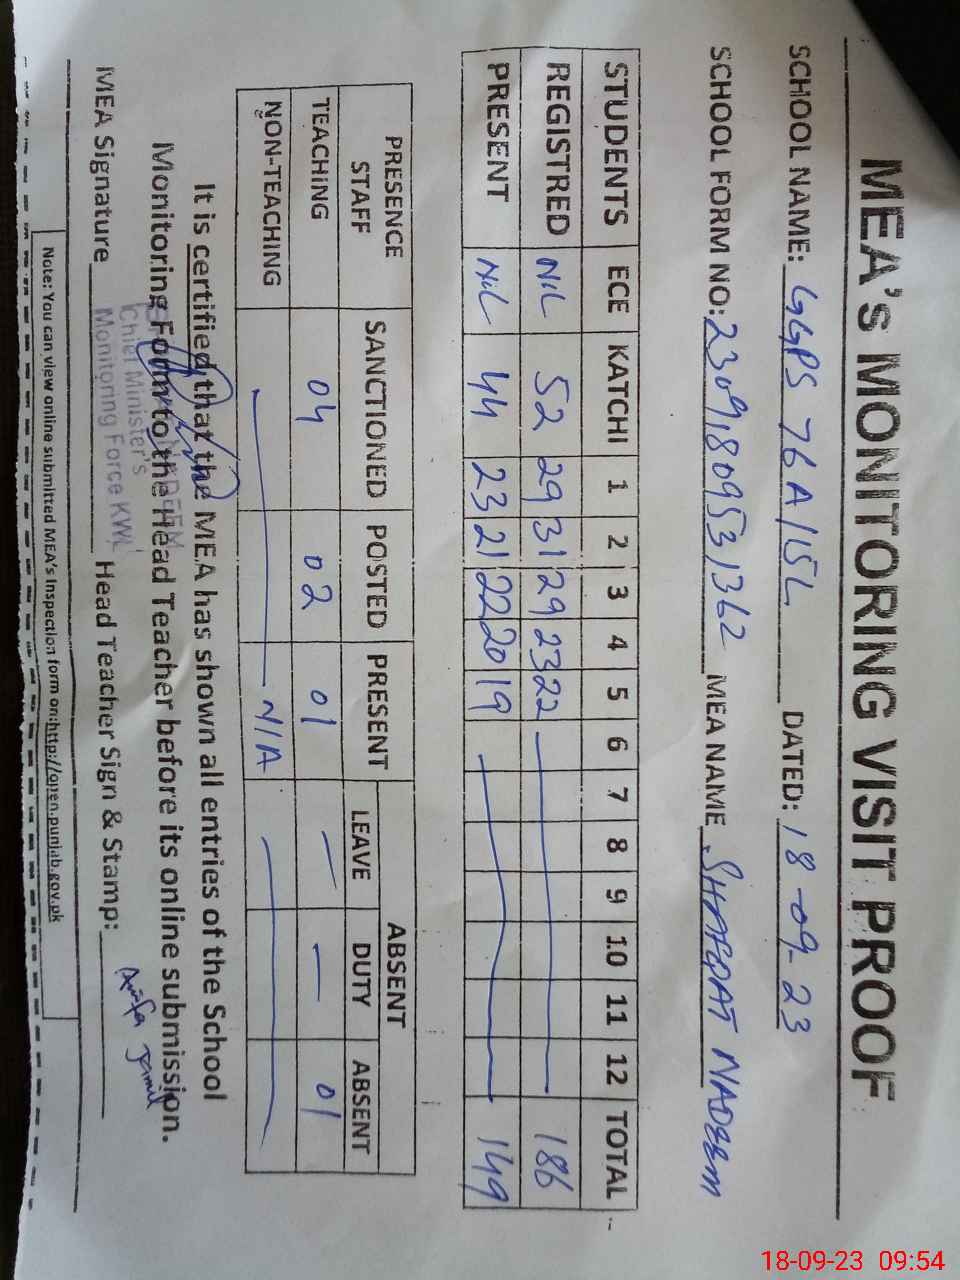 MEA's MONITORING VISIT PROOF
SCHOOL NAME: GGPS 76A/15L DATED: 18-09-23
SCHOOL FORM NO: 23091809531362 MEA NAME SHAFQAT NADEEM
STUDENTS ECE KATCHI 1 2 3 4 5 6 7 8 9 10 11 12 TOTAL
REGISTRED NIL 52 29 31 29 23 22 186
PRESENT NIL 44 23 21 22 20 19 149
PRESENCE ABSENT
STAFF SANCTIONED POSTED PRESENT LEAVE DUTY ABSENT
TEACHING 04 02 01 — — 01
NON-TEACHING N/A
It is certified that the MEA has shown all entries of the School
Monitoring Form to the Head Teacher before its online submission.
Chief Minister's
Monitoring Force KWL
MEA Signature Head Teacher Sign & Stamp:
Note: You can view online submitted MEA's Inspection form on:http://open.punjab.gov.pk
18-09-23 09:54